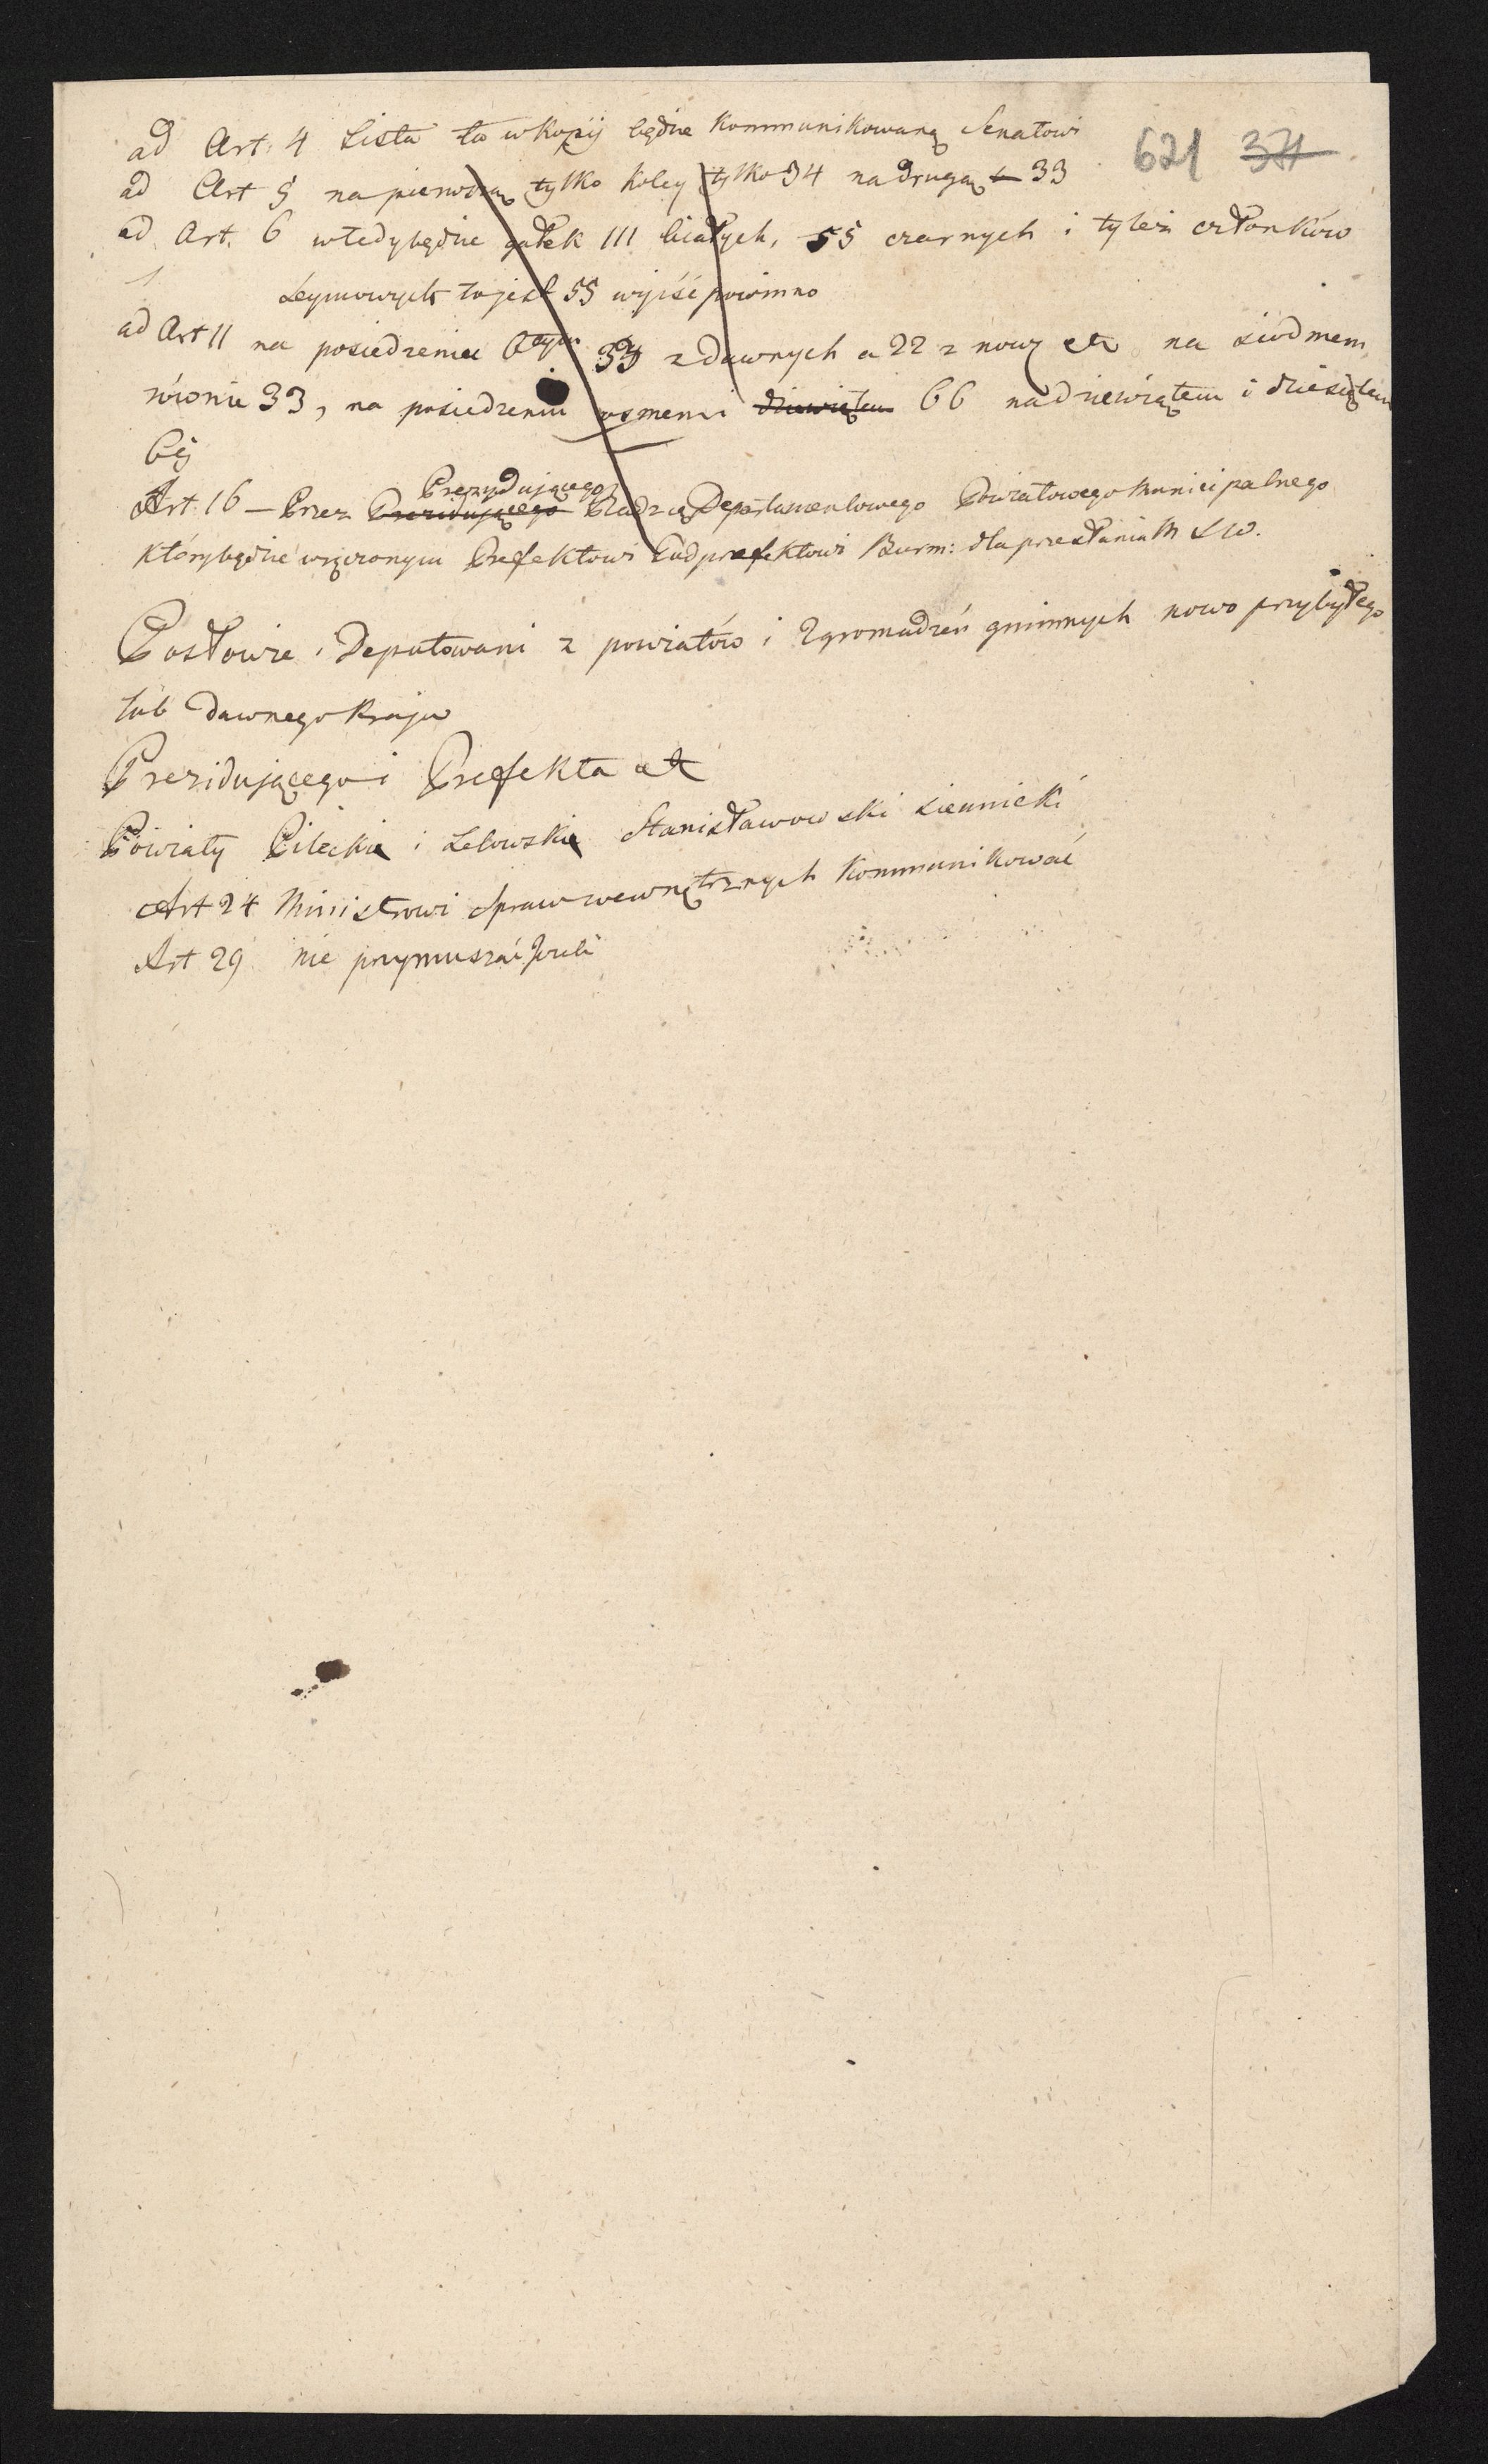 621 371
ad Art: 4 Lista ta w kopij będzie kommunikowaną Senatowi
ad Art 5 na pierwszą tylko koley tylko 34 na drugą 33
ad Art. 6 wtedy będzie gałek 111 białych, 55 czarnych i tyleż członków
Seymowych to jest 55 wyjść powinno
ad Art 11 na posiedzeniu 33 z dawnych a 22 z nowz etc na siodmem
równie 33, na posiedzeniu osmem i dziewiątem 66 na dziewiątem i dziesiątem
Prezydującego
Art. 16 – Przez Prezidującego Radzie Departamentowego Powiatowego Municipalnego
który będzie wręczonym Prefektowi Podprefektowi Burm: dla przesłania M S W.
Posłowie i Deputowani z powiatów i Zgromadzeń gminnych nowo przybyłego
lub dawnego Kraju
Prezidującego i Prefekta etc
Powiaty Pilecki i Lelowski Stanisławowski Siennicki
Art 24 Ministrowi Spraw wewnętrznych kommunikować
Art 29 nie przymuszać